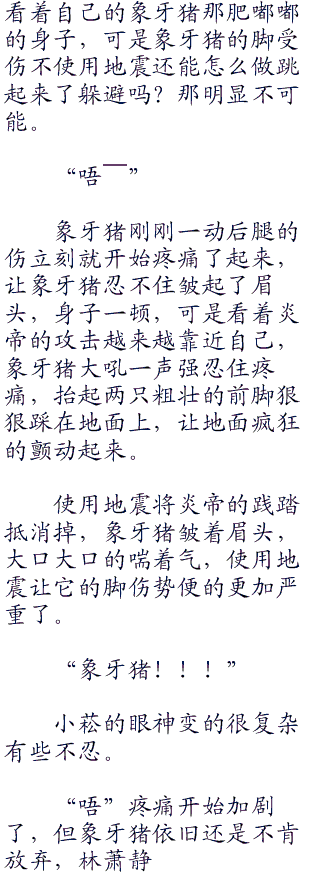 看着自己的象牙猪那肥嘟嘟
的身子，可是象牙猪的脚受
伤不使用地震还能怎么做跳
起来了躲避吗？那明显不可
能。
“唔——”
象牙猪刚刚一动后腿的
伤立刻就开始疼痛了起来，
让象牙猪忍不住皱起了眉
头，身子一顿，可是看着炎
帝的攻击越来越靠近自己，
象牙猪大吼一声强忍住疼
痛，抬起两只粗壮的前脚狠
狠踩在地面上，让地面疯狂
的颤动起来。
使用地震将炎帝的践踏
抵消掉，象牙猪皱着眉头，
大口大口的喘着气，使用地
震让它的脚伤势便的更加严
重了。
“象牙猪！！！”
小菘的眼神变的很复杂
有些不忍。
“唔”疼痛开始加剧
了，但象牙猪依旧还是不肯
放弃，林萧静